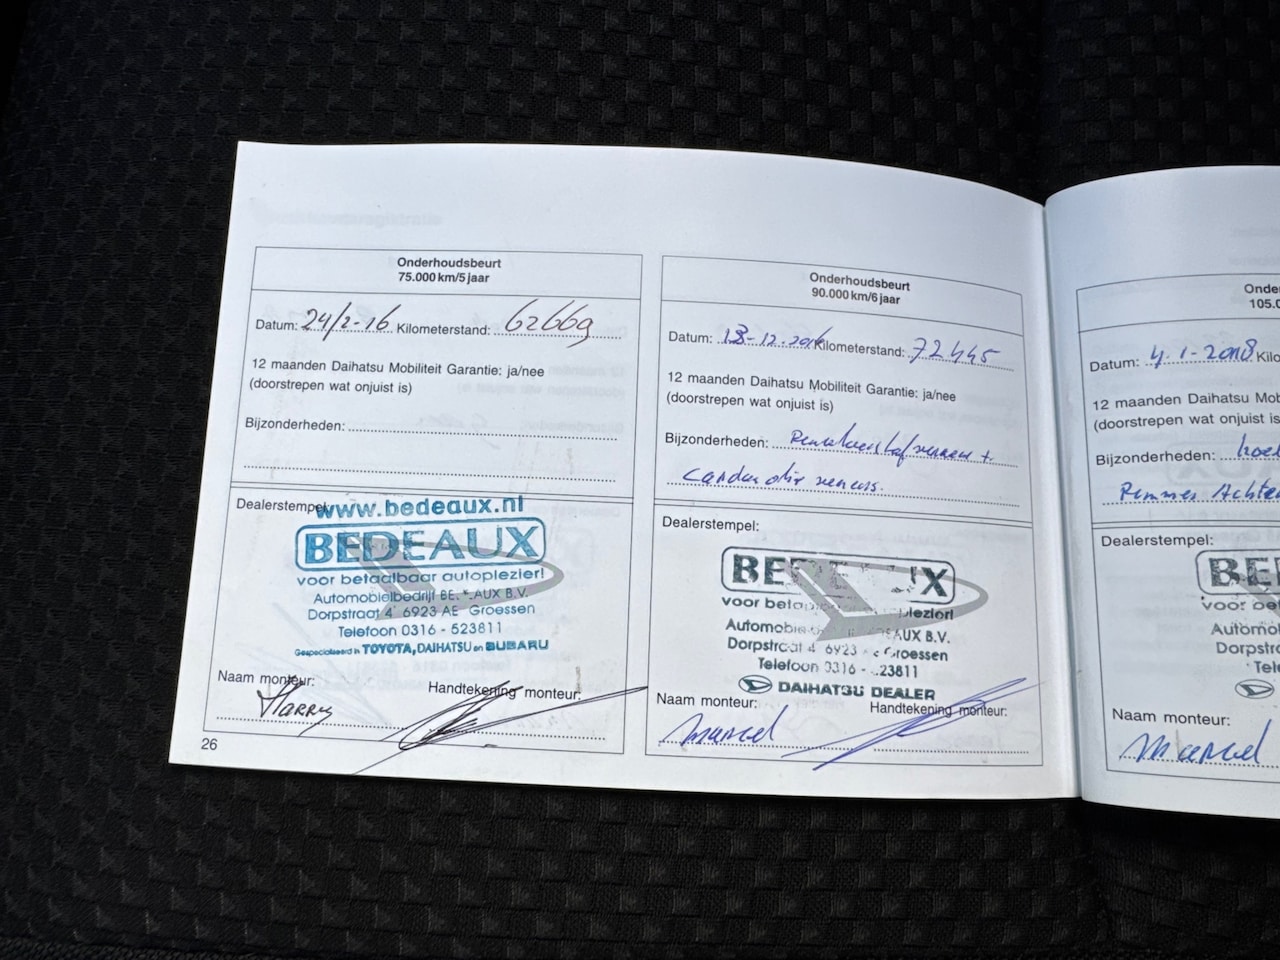 Onderhoudsbeurt
75.000 km/5 jaar
Datum: 24/2-16 Kilometerstand: 62669
12 maanden Daihatsu Mobiliteit Garantie: ja/nee
(doorstrepen wat onjuist is)
Bijzonderheden:
Dealerstempel:
www.bedeaux.nl
BEDEAUX
voor betaalbaar autoplezier!
Automobielbedrijf BE AUX B.V.
Dorpstraat 4 6923 AE Groessen
Telefoon 0316 - 523811
Gespecialiseerd in TOYOTA, DAIHATSU en SUBARU
Naam monteur: Handtekening monteur:
Harry
26
Onderhoudsbeurt
90.000 km/6 jaar
Datum: 13-12-2016 Kilometerstand: 72445
12 maanden Daihatsu Mobiliteit Garantie: ja/nee
(doorstrepen wat onjuist is)
Bijzonderheden: +
Cardan olie
Dealerstempel:
BE UX
voor betap plezier!
Automobie AUX B.V.
Dorpstraat 4 6923 Groessen
Telefoon 0316 - 23811
DAIHATSU DEALER
Naam monteur: Handtekening monteur:
Marcel
Onde
105.0
Datum: 4-1-2018 Kilo
12 maanden Daihatsu Mob
(doorstrepen wat onjuist is
Bijzonderheden:
Remmen Achter
Dealerstempel:
BE
voor be
Automo
Dorpstr
Tel
Naam monteur:
Marcel